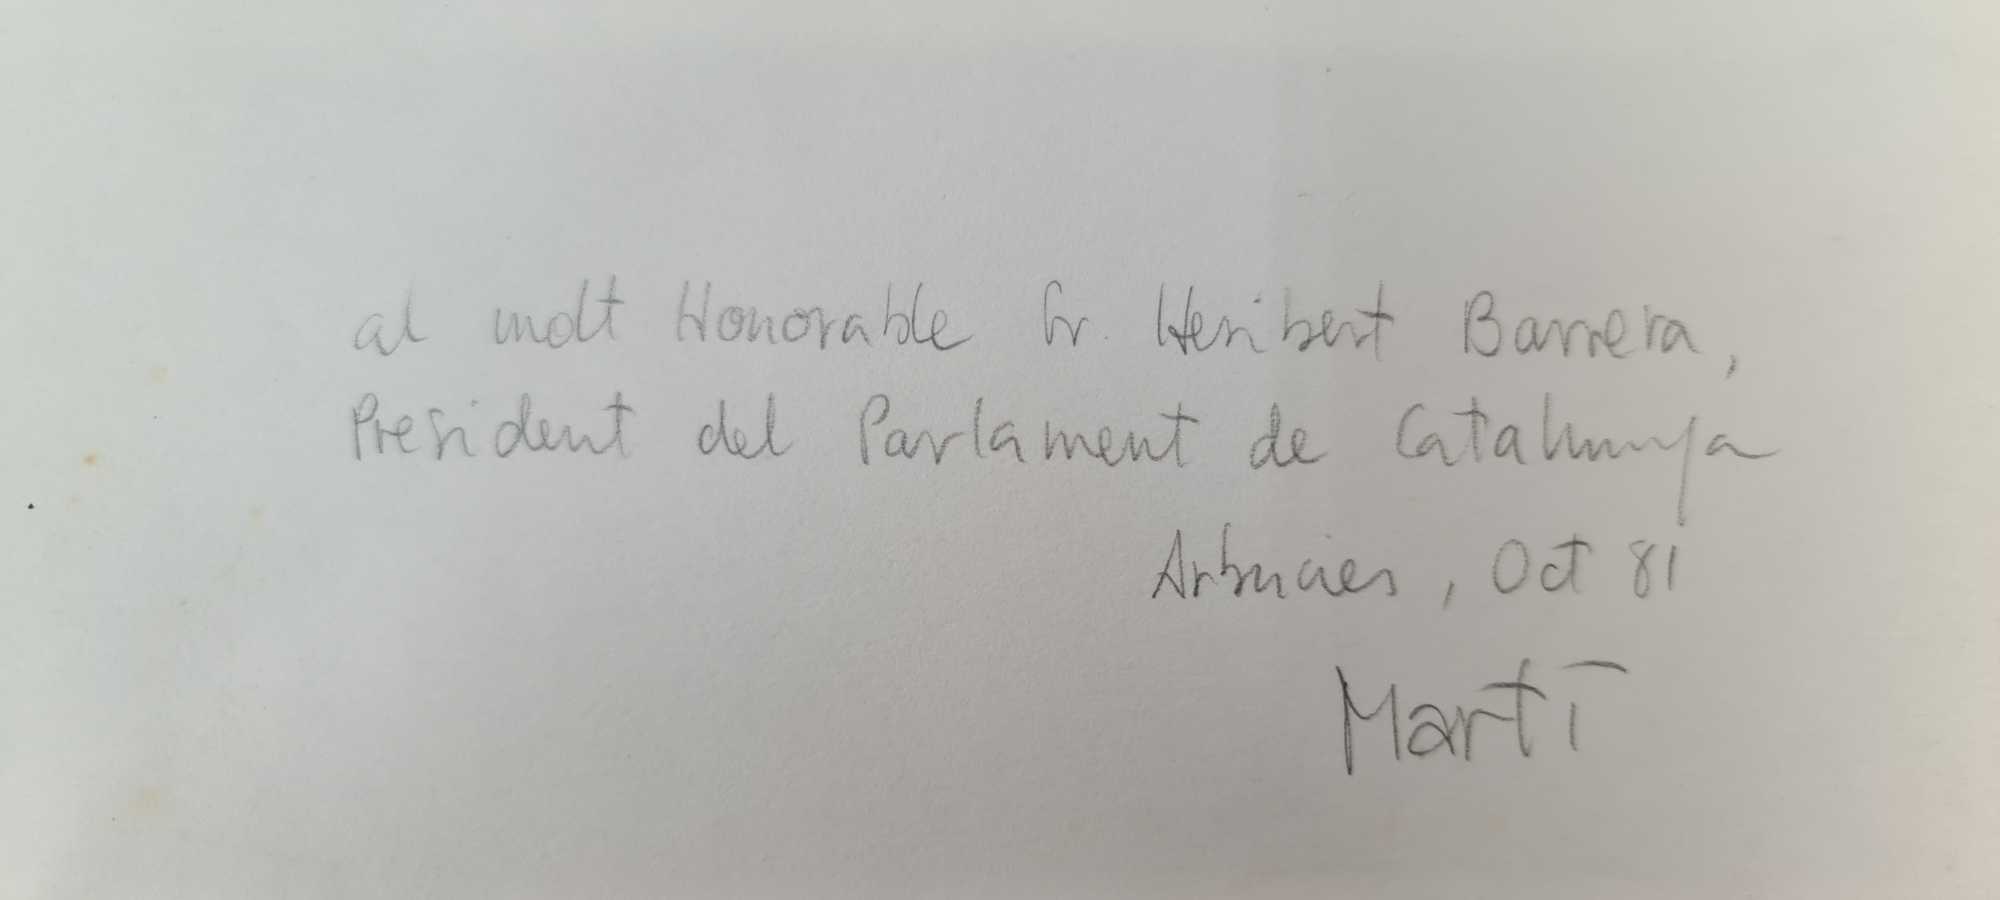 al molt Honorable Sr. Heribert Barrera,
President del Parlament de Catalunya
Arbucies, Oct 81
Martí